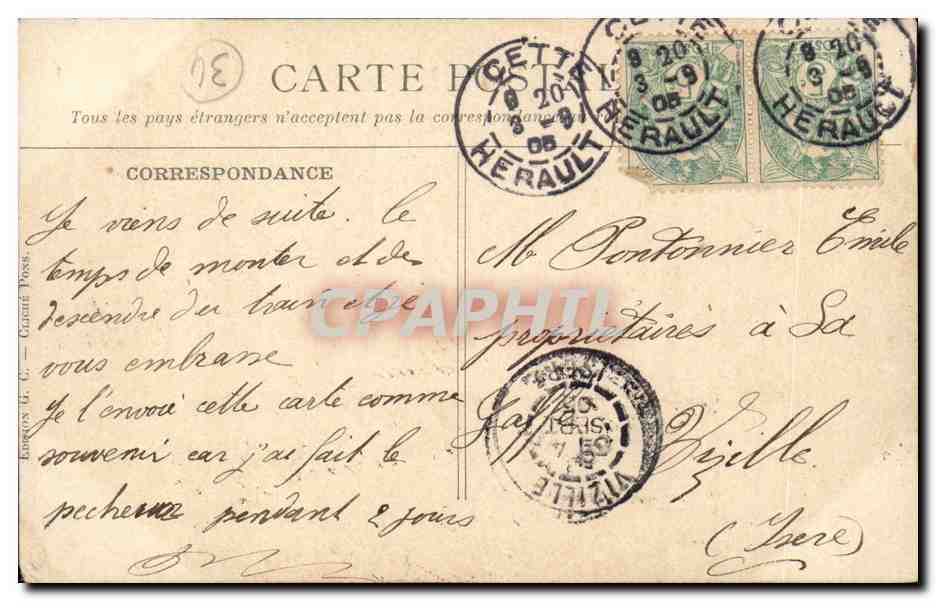 34
CARTE POSTALE
Tous les pays étrangers n'acceptent pas la correspondance au
CORRESPONDANCE
Je viens de suite. le
temps de monter et de
descendre du train et je
vous embrasse
Je t'envoie cette carte comme
souvenir car j'ai fait le
pecheur pendant 2 jours
EDITION G. C. — CLICHÉ PONS.
M Pontonnier Emile
propriétaires à La
Vizille
(Isere)
CETTE
9 20
3 -9
05
HERAULT
CETTE
9 20
3 -9
05
HERAULT
9 20
3 -9
05
HERAULT
VIZILLE
SEPT
05
ISERE
CPAPHIL